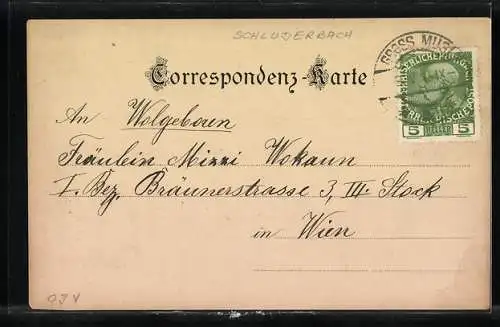 SCHLUDERBACH
GROSS MUG
Correspondenz-Karte
KAISERLICHE KÖNIGL
ÖSTERREICHISCHE POST
5 HELLER 5
An Wolgeboren
Fräulein Mizzi Wokaun
I. Bez. Bräunerstrasse 3, III. Stock
in Wien